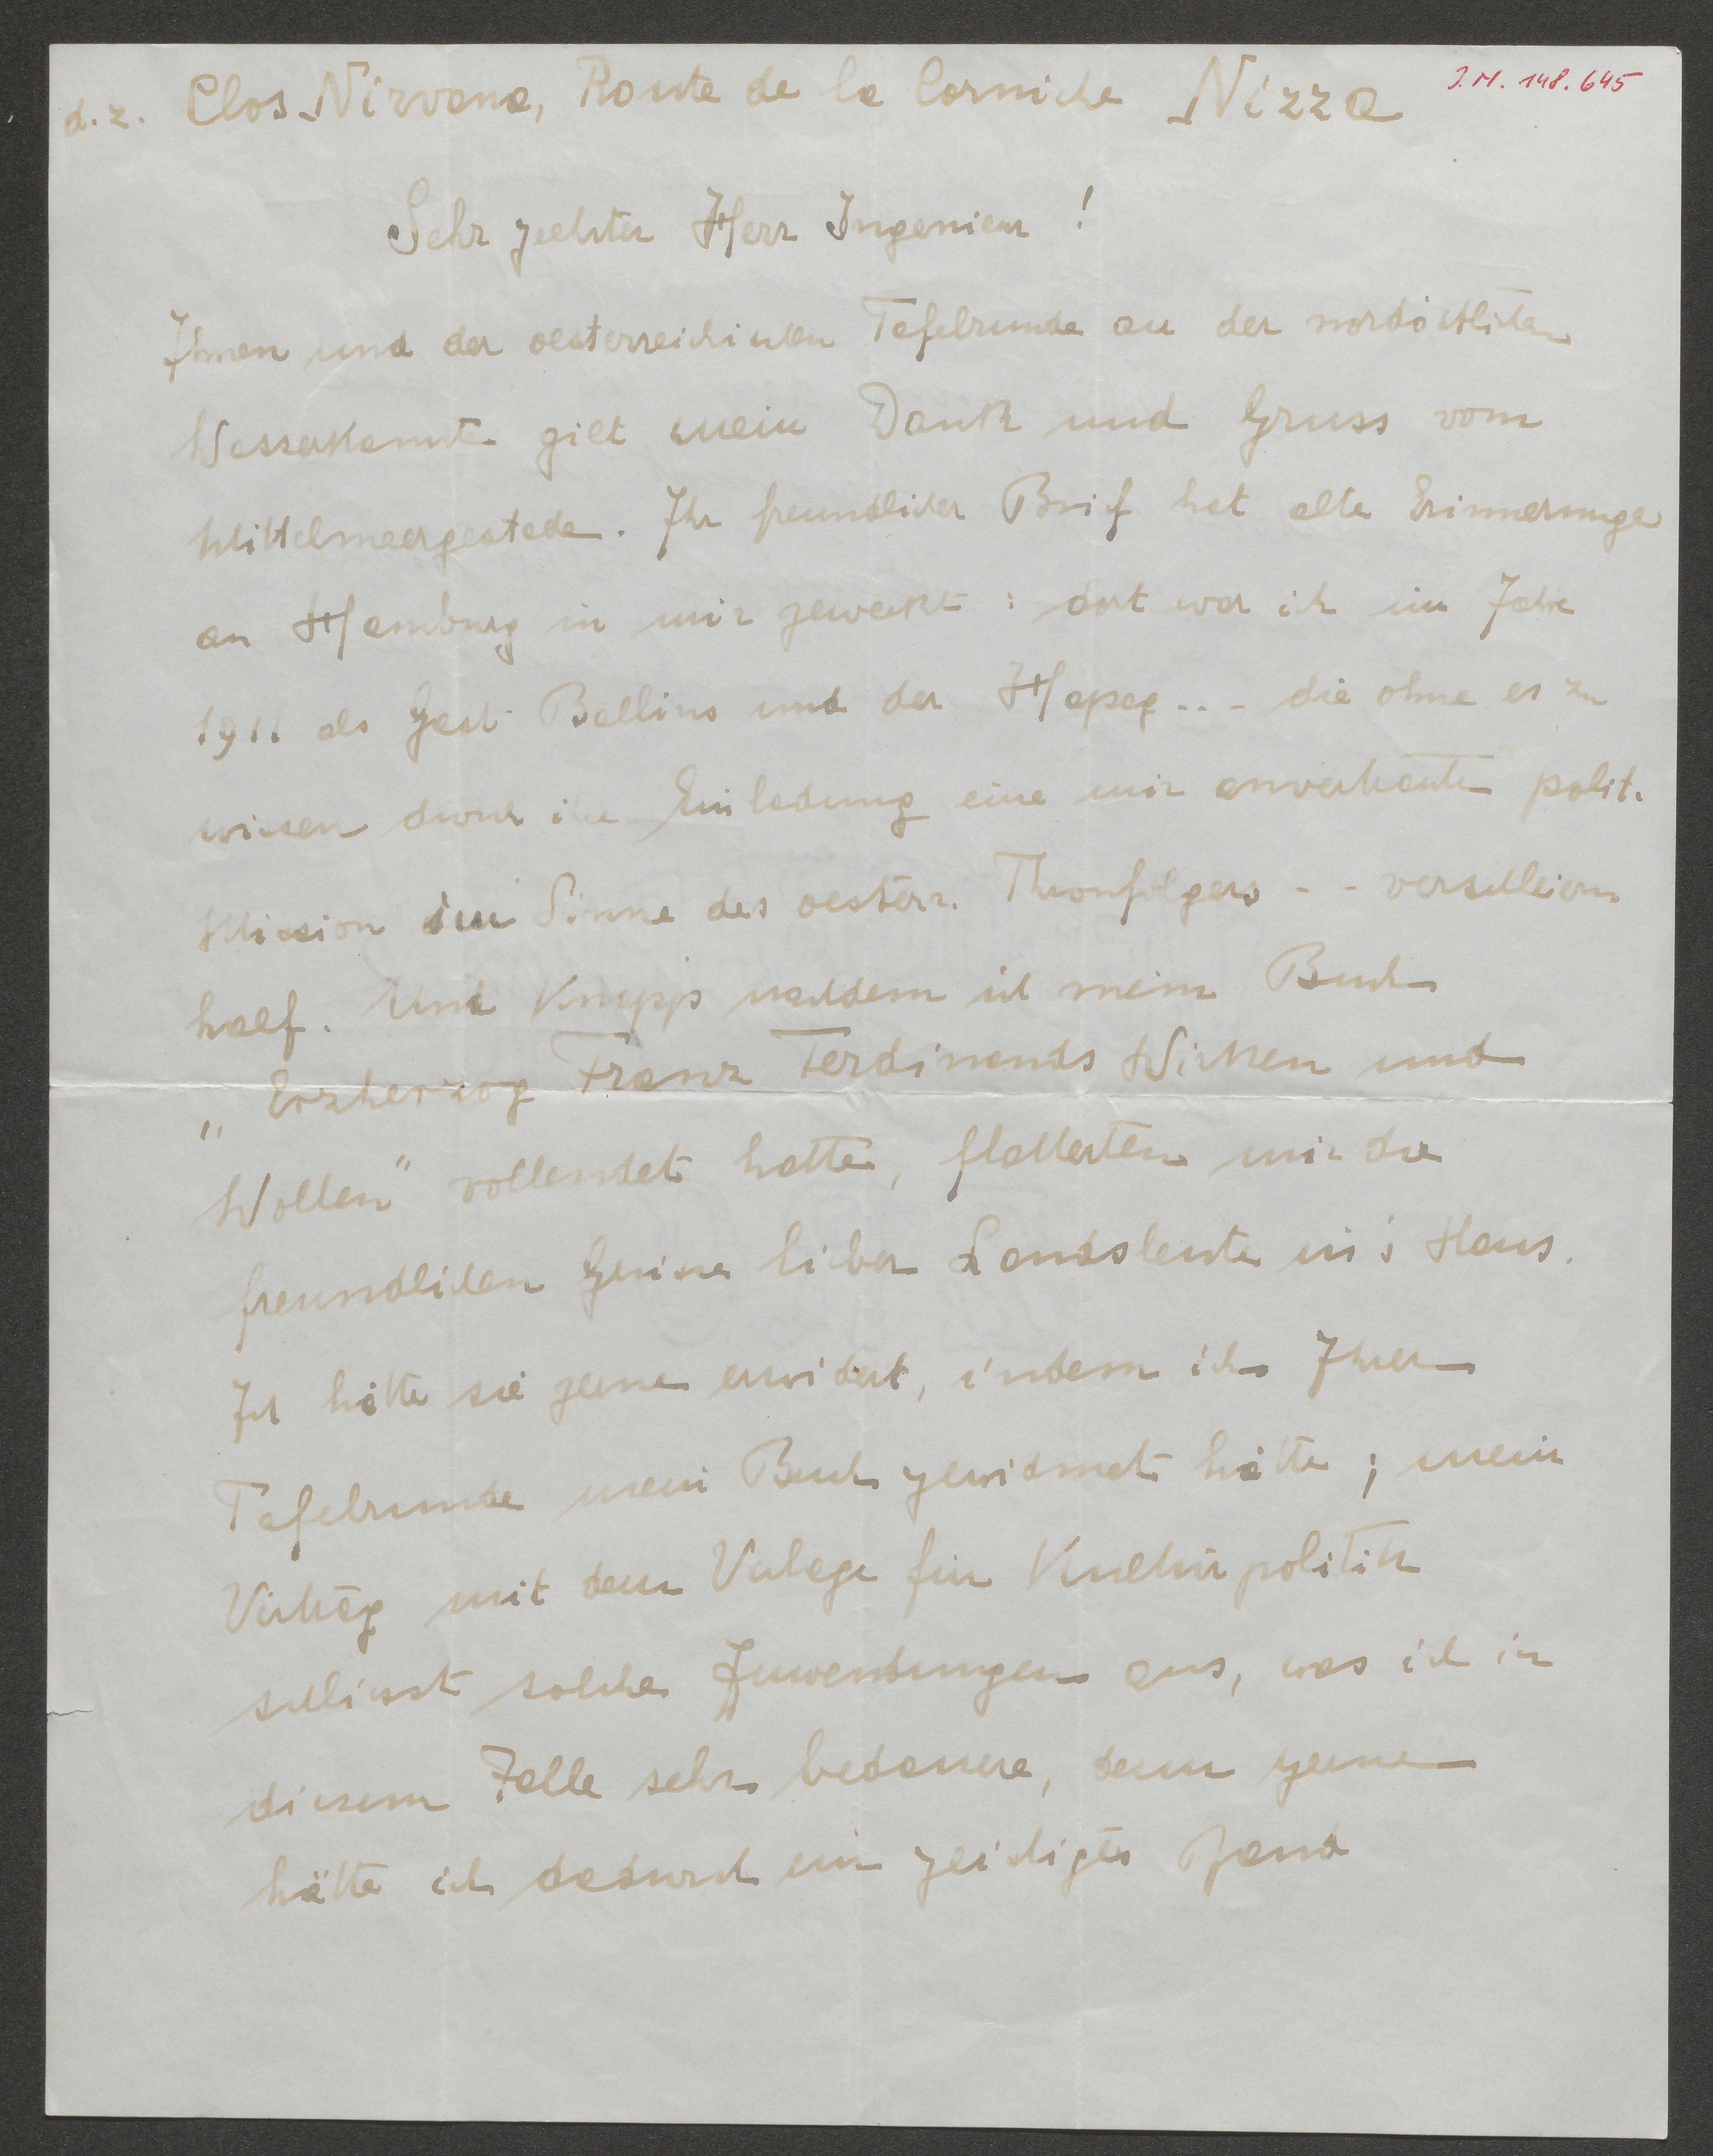 J.N. 148.645
d. z. Clos Nirvana, Route de la Corniche Nizza
Sehr geehrter Herr Ingenieur!
Ihnen und der oesterreichischen Tafelrunde an der nordöstlichen
Wasserkannte gilt mein Dank und Gruss vom
Mittelmeergestade. Ihr freundlicher Brief hat alte Erinnerungen
an Hamburg in mir geweckt: dort war ich im Jahre
1911 als Gast Ballins und der Hapag... die ohne es zu
wissen durch ihre Einladung eine mir anvertraute polit.
Mission im Sinne des oesterr. Thronfolgers - - verschleiern
half. Und knapp nachdem ich mein Buch
„Erzherzog Franz Ferdinands Wirken und
Wollen" vollendet hatte, flatterten mir die
freundlichen Grüsse lieber Landsleute in's Haus.
Ich hätte sie gerne erwidert, indem ich Ihrer
Tafelrunde mein Buch gewidmet hätte; mein
Vertrag mit dem Verlage für Kulturpolitik
schliesst solche Zuwendungen aus, was ich in
diesem Falle sehr bedauere, denn gerne
hätte ich dadurch ein geistiges Band